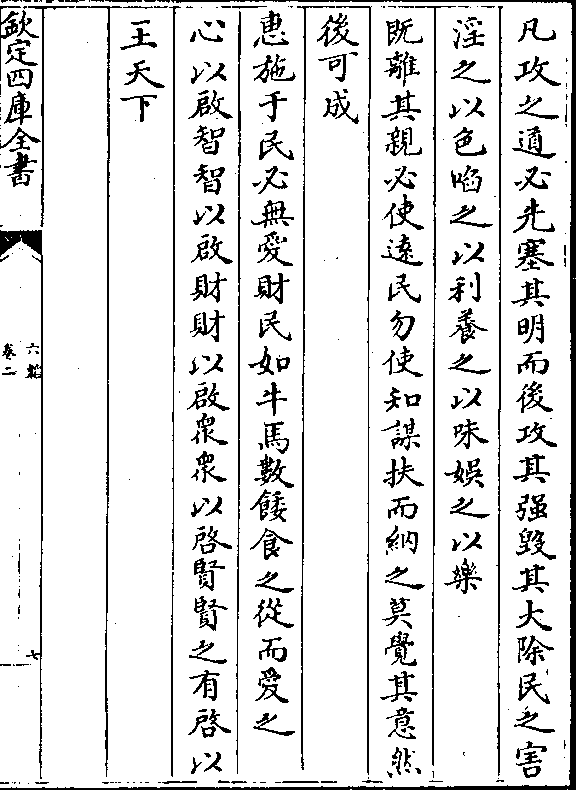 凡攻之道必先塞其明而後攻其强毀其大除民之害
淫之以色啗之以利養之以味娯之以樂
既離其親必使逺民勿使知謀扶而納之莫覺其意然
後可成
惠施于民必無愛財民如牛馬數餧食之從而愛之
心以啟智智以啟財財以啟衆衆以啓賢賢之有啓以
王天下
欽定四庫全書
六韜
卷二
七